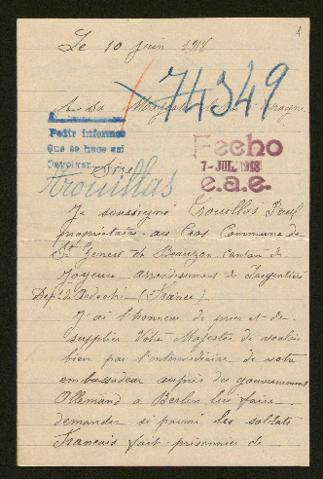 1
Le 10 juin 1918
74349
A Sa Majesté le Roi d'Espagne
Pedir informes
Que se hace así
Devolver
Fecho
7-JUL.1918
e.a.e.
Sire
Trouillas
Je soussigné Trouillas Paul
propriétaire au Cros Commune de
St Genest de Beauzon canton de
Joyeuse arrondissement de Largentière
Dept de Ardèche (France)
J'ai l'honneur de prier et de
supplier Votre Majesté de vouloir
bien par l'intermédiaire de votre
embassadeur auprès du gouvernement
Allemand à Berlin lui faire
demander si parmi les soldats
Francais fait prisonnier de